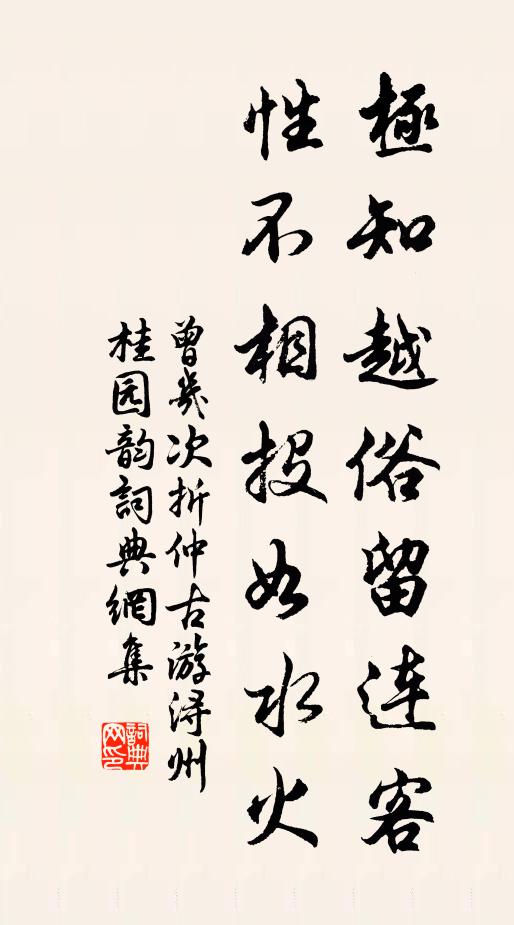 極知越俗留连客
性不相投如水火
曾幾次折仲古游浔州
桂园韵詞典網集
詞典網印